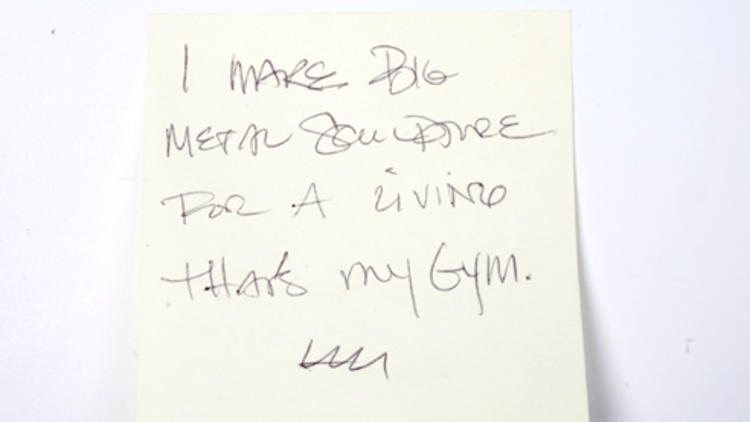 I MAKE BIG
METAL SCULPTURE
FOR A LIVING
THAT'S MY GYM.